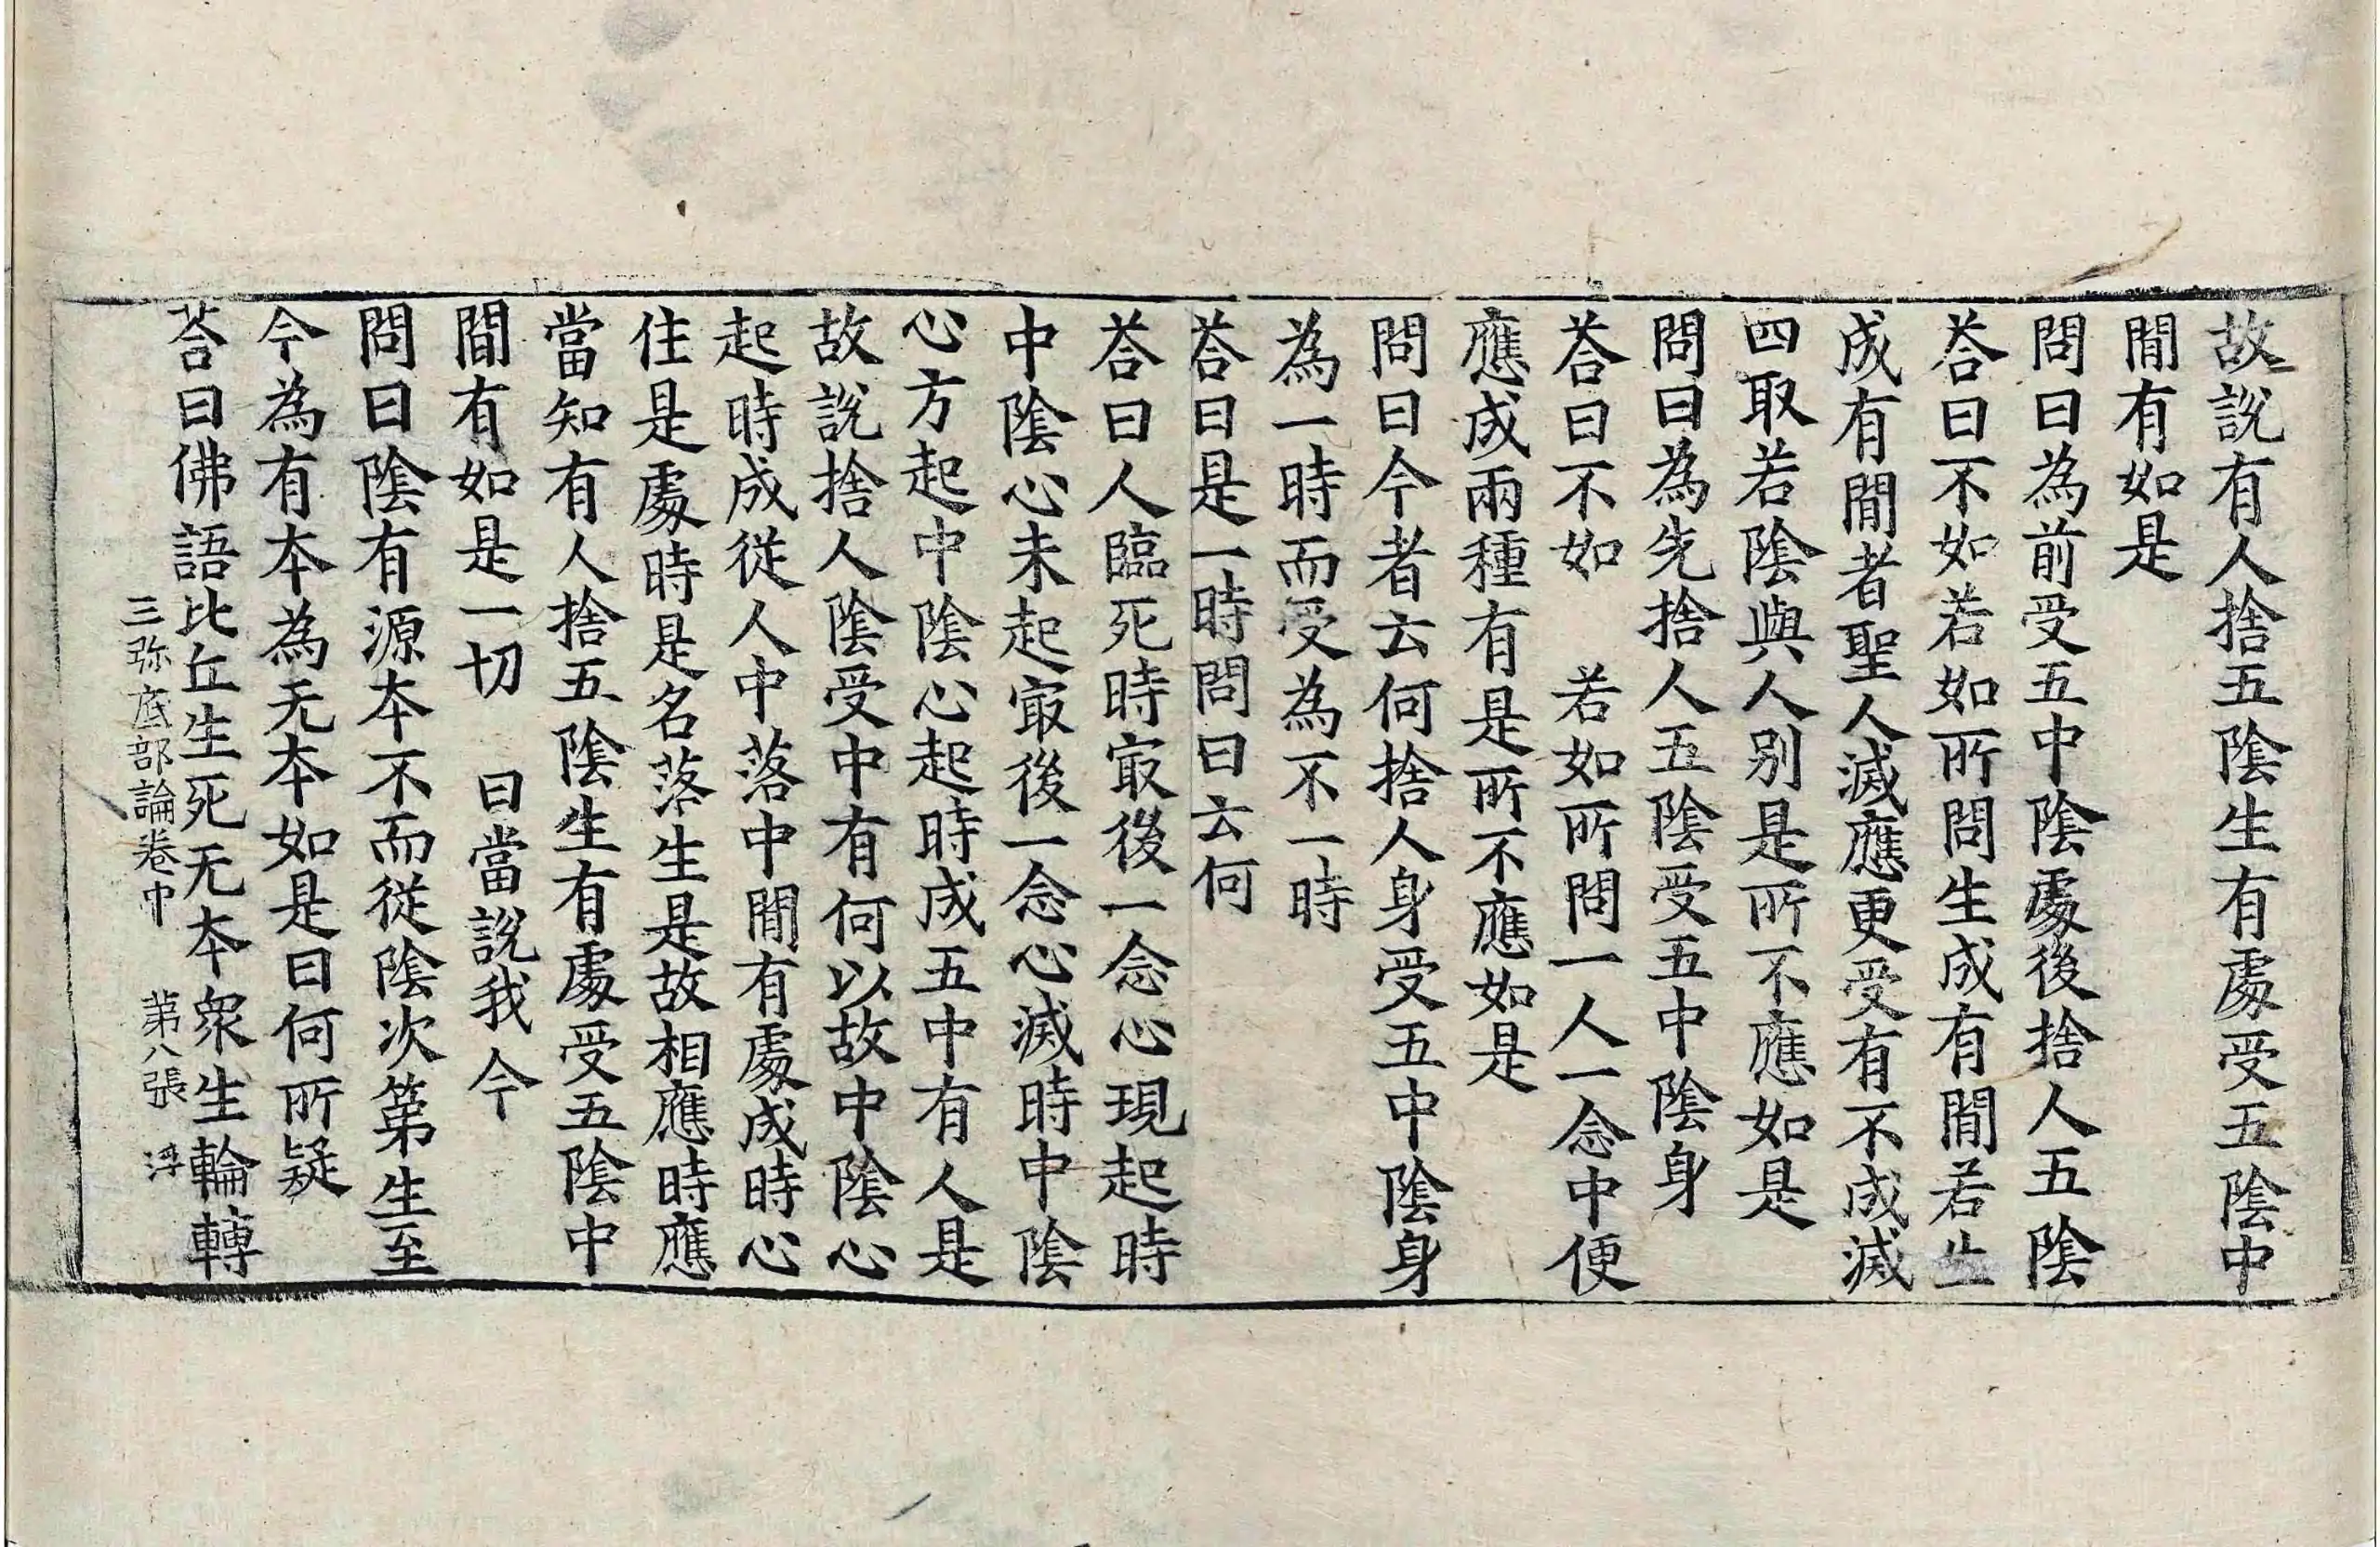 故說有人捨五陰生有處受五陰中
閒有如是
問曰為前受五中陰處後捨人五陰
荅曰不如若如所問生成有閒若生
成有閒者聖人滅應更受有不成滅
四取若陰與人別是所不應如是
問曰為先捨人五陰受五中陰身
荅曰不如　若如所問一人一念中便
應成兩種有是所不應如是
問曰今者云何捨人身受五中陰身
為一時而受為不一時
荅曰是一時問曰云何
荅曰人臨死時㝡後一念心現起時
中陰心未起㝡後一念心滅時中陰
心方起中陰心起時成五中有人是
故說捨人陰受中有何以故中陰心
起時成從人中落中閒有處成時心
住是處時是名落生是故相應時應
當知有人捨五陰生有處受五陰中
閒有如是一切　曰當說我今
問曰陰有源本不而從陰次第生至
今為有本為无本如是曰何所疑
荅曰佛語比丘生死无本衆生輪轉
三弥底部論卷中　苐八張　浮